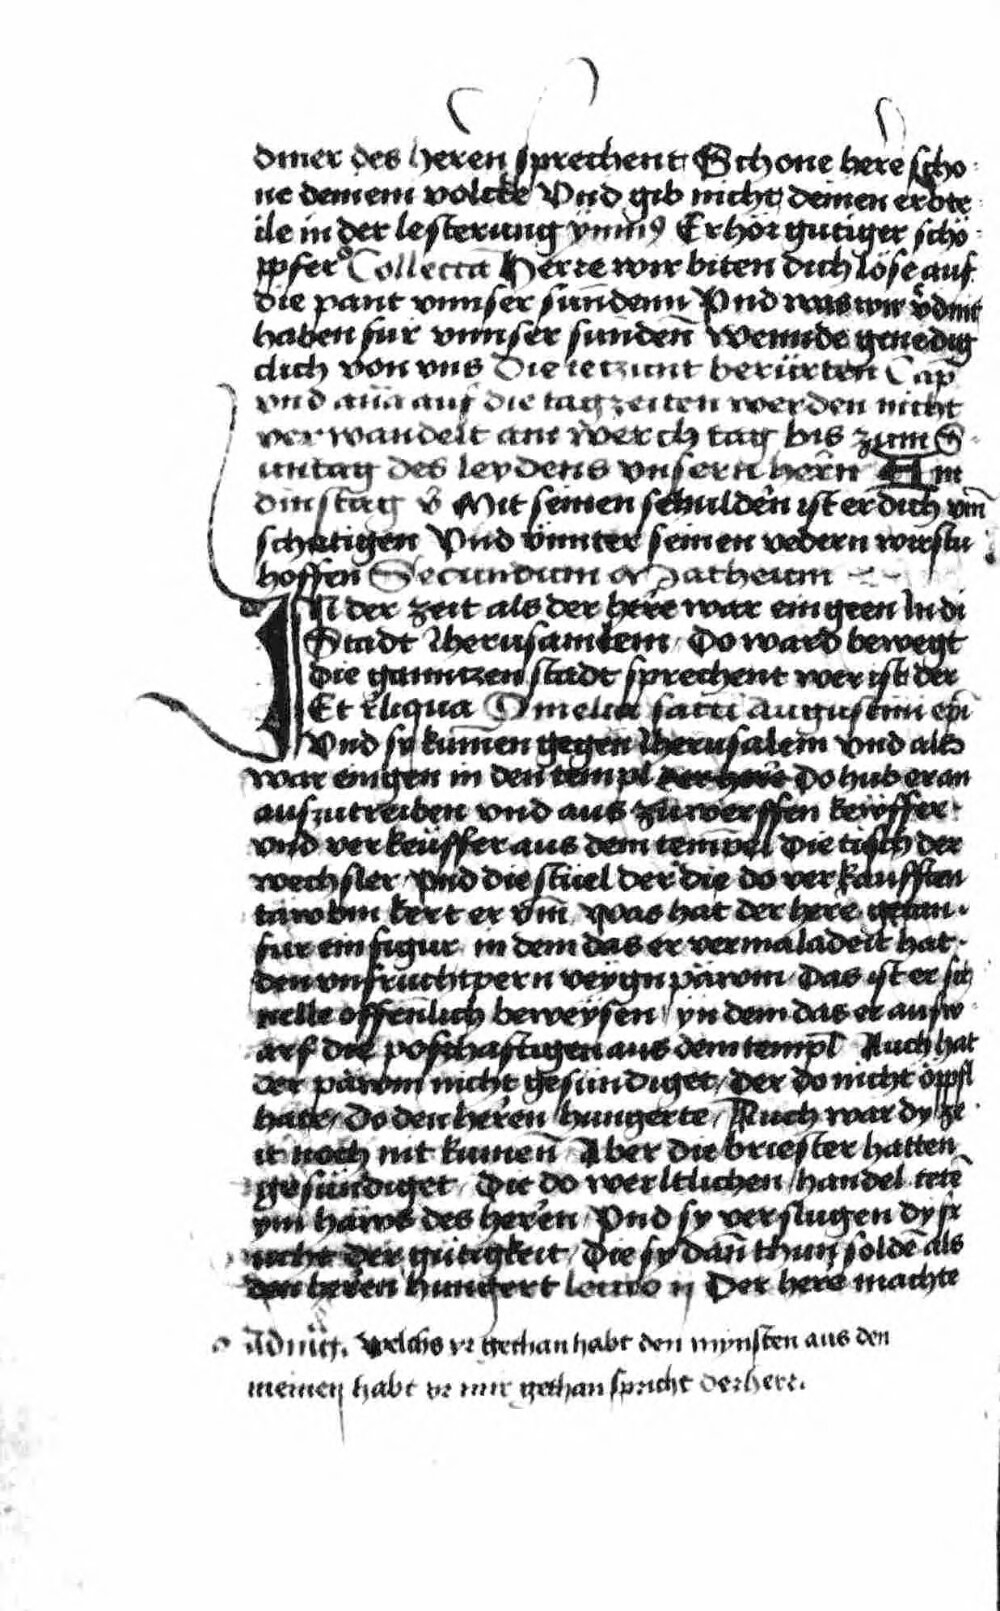 diner des heren sprechent Schone here scho
ne deinem volcke Vnd gib nicht deinen erbte
ile in der lesterung Erhör gutiger schö
pffer Collecta Herre wir biten dich löse auf
die pant vnnser sunden Vnd was wir vdint
haben fur vnnser sunden Wennde genedig
clich von vns Die ietzunt berürten Cap
vnd aña auf die tagzeiten werden nicht
verwandelt am werch tag bis zum S
untag des leydens vnsern hern Am
dinstag v̂ Mit seinen schulderñ ist er dich vm̄
schatigen Vnd vnnter seinen vedern wirstu
hoffen Secundum Matheum
IN der zeit als der here war eingeen In di
Stadt Iherusamlem Do ward bewegt
die ganntzen stadt sprechent wer ist der
Et reliqua Omelia sancti augustini epi
Vnd sy kumen gegen Iherusalem vnd als
war eingen in den templ der here Do hub er an
auszutreiben vnd aus zuwerffen kewffer
vnd verkeuffer aus dem tempel Die tisch der
wechsler Vnd die stüel der die do verkaufften
tawbm kert er vm̄ Was hat der here getan
fur ein figur in dem das er vermaladeit hat
den vnfruchtpern veygn päwm Das ist er sch
nelle offenlich beweysen yn dem das er aufw
arf die poschaftigen aus dem templ Auch hat
der päwm nicht gesundiget der do nicht öppfl
hate do den heren hungerte Auch war dy ze
it noch nit kumen Aber die briester hatten
gesündiget Die do werltlichen handel tetē
ym haws des heren Vnd sy verslugen dy fr
ucht der gütigkeit Die sy dañ thun soldē als
den heren hungert lectio ij Der here machte
Adm̄g. Welchs yr gethan habt den mynsten aus den
meinen habt yr mir gethan spricht der herr.